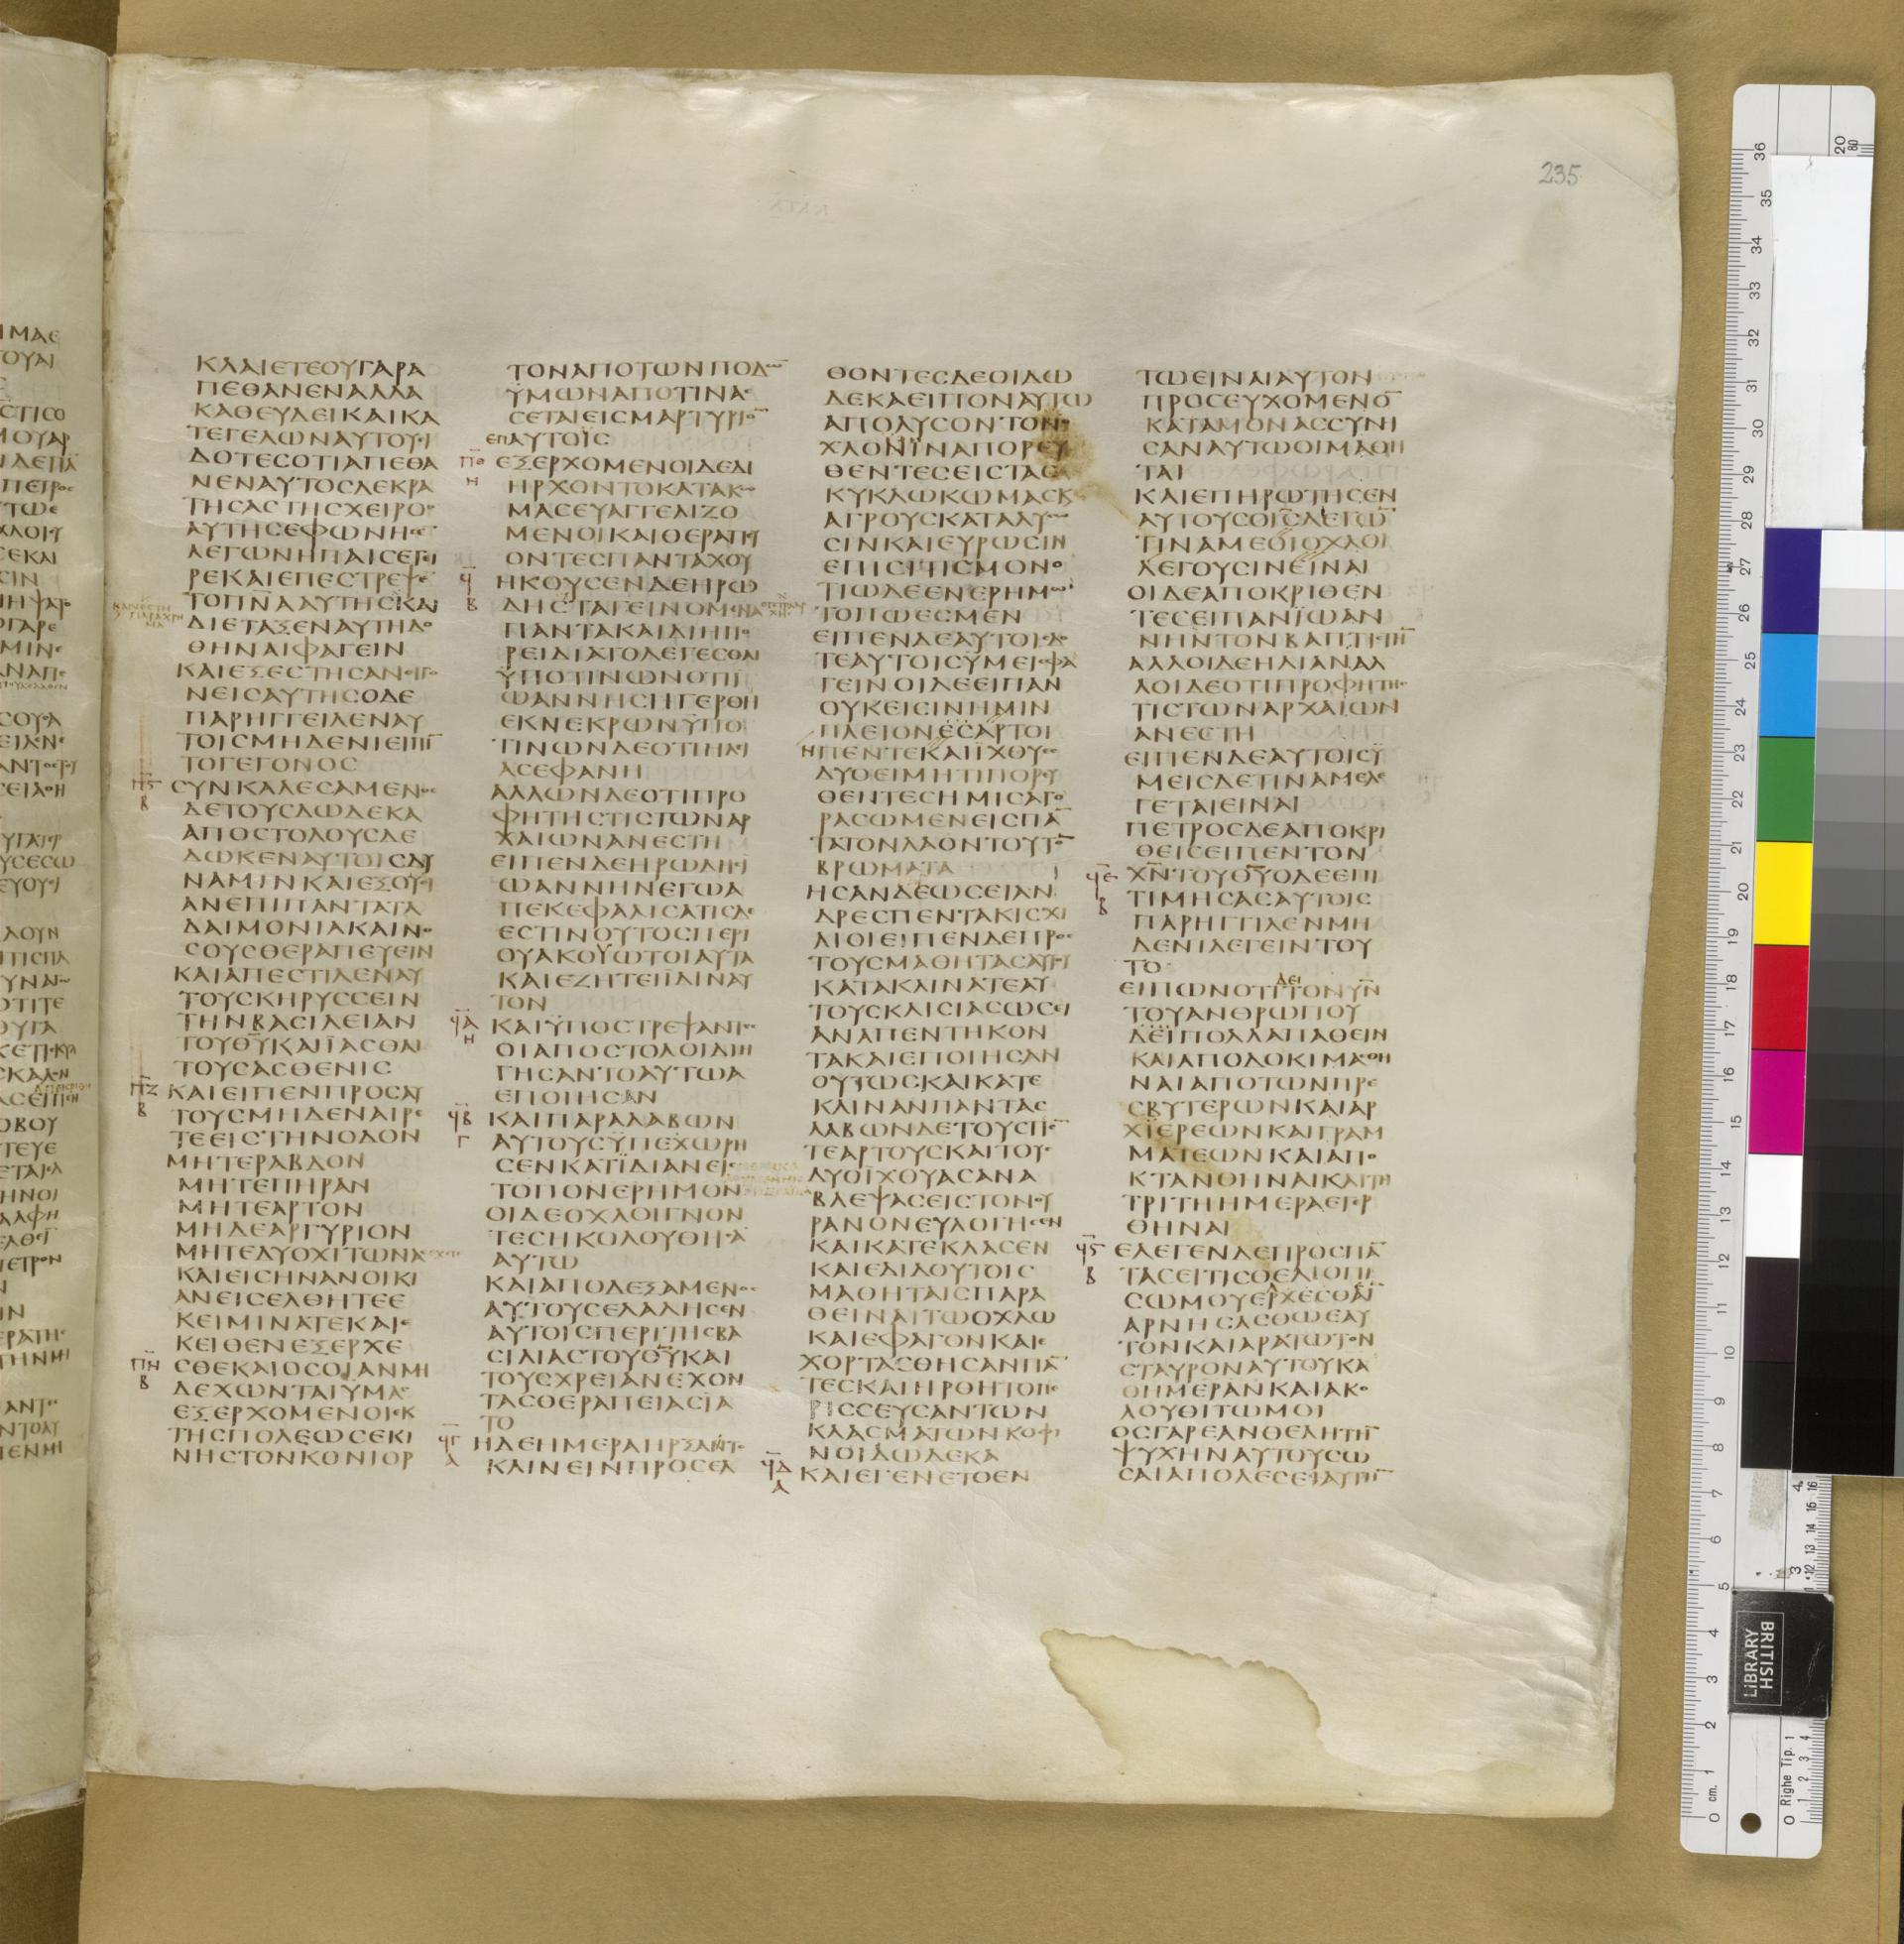 235
ΚΛΑΙΕΤΕΟΥΓΑΡΑ
ΠΕΘΑΝΕΝΑΛΛΑ
ΚΑΘΕΥΔΕΙΚΑΙΚΑ
ΤΕΓΕΛΩΝΑΥΤΟΥΕΙ
ΔΟΤΕСΟΤΙΑΠΕΘΑ
ΝΕΝΑΥΤΟСΔΕΚΡΑ
ΤΗСΑСΤΗСΧΕΙΡΟС
ΑΥΤΗСΕΦΩΝΗСΕ
ΛΕΓΩΝΗΠΑΙСΕΓΕΙ
ΡΕΚΑΙΕΠΕСΤΡΕΨΕ
ΤΟΠΝΑΑΥΤΗСΚΑΙ
ΔΙΕΤΑΞΕΝΑΥΤΗΔΟ
ΘΗΝΑΙΦΑΓΕΙΝ
ΚΑΙΕΞΕСΤΗСΑΝΟΙΓΟ
ΝΕΙСΑΥΤΗСΟΔΕ
ΠΑΡΗΓΓΕΙΛΕΝΑΥ
ΤΟΙСΜΗΔΕΝΙΕΙΠΙ̅
ΤΟΓΕΓΟΝΟС
Π̅Ϛ̅ Β
СΥΝΚΑΛΕСΑΜΕΝΟС
ΔΕΤΟΥСΔΩΔΕΚΑ
ΑΠΟСΤΟΛΟΥСΔΕ
ΔΩΚΕΝΑΥΤΟΙСΔΥ
ΝΑΜΙΝΚΑΙΕΞΟΥСΙ
ΑΝΕΠΙΠΑΝΤΑΤΑ
ΔΑΙΜΟΝΙΑΚΑΙΝΟ
СΟΥСΘΕΡΑΠΕΥΕΙΝ
ΚΑΙΑΠΕСΤΙΛΕΝΑΥ
ΤΟΥСΚΗΡΥССΕΙΝ
ΤΗΝΒΑСΙΛΕΙΑΝ
ΤΟΥΘ̅Υ̅ΚΑΙΪΑСΘΑΙ
ΤΟΥСΑСΘΕΝΙС
Π̅Ζ̅ Β
ΚΑΙΕΙΠΕΝΠΡΟСΑΥ
ΤΟΥСΜΗΔΕΝΑΙΡΕ
ΤΕΕΙСΤΗΝΟΔΟΝ
ΜΗΤΕΡΑΒΔΟΝ
ΜΗΤΕΠΗΡΑΝ
ΜΗΤΕΑΡΤΟΝ
ΜΗΔΕΑΡΓΥΡΙΟΝ
ΜΗΤΕΔΥΟΧΙΤΩΝΑС
ΚΑΙΕΙСΗΝΑΝΟΙΚΙ
ΑΝΕΙСΕΛΘΗΤΕΕ
ΚΕΙΜΙΝΑΤΕΚΑΙΕ
ΚΕΙΘΕΝΕΞΕΡΧΕ
Π̅Η̅ Β
СΘΕΚΑΙΟСΟΙΑΝΜΗ
ΔΕΧΩΝΤΑΙΫΜΑС
ΕΞΕΡΧΟΜΕΝΟΙΕΚ
ΤΗСΠΟΛΕΩСΕΚΙ
ΝΗСΤΟΝΚΟΝΙΟΡ
ΤΟΝΑΠΟΤΩΝΠΟΔΩ̅
ΫΜΩΝΑΠΟΤΙΝΑС
СΕΤΑΙΕΙСΜΑΡΤΥΡΙΟ̅
ΕΠΑΥΤΟΙС
Π̅Θ̅ Η
ΕΞΕΡΧΟΜΕΝΟΙΔΕΔΙ
ΗΡΧΟΝΤΟΚΑΤΑΚΩ
ΜΑСΕΥΑΓΓΕΛΙΖΟ
ΜΕΝΟΙΚΑΙΘΕΡΑΠΕΥ
ΟΝΤΕСΠΑΝΤΑΧΟΥ
Ϟ̅ Β
ΗΚΟΥСΕΝΔΕΗΡΩ
ΔΗСΤΑΓΕΙΝΟΜΕΝΑ
ΠΑΝΤΑΚΑΙΔΙΗΠΟ
ΡΕΙΔΙΑΤΟΛΕΓΕСΘΑΙ
ΫΠΟΤΙΝΩΝΟΤΙΪ
ΩΑΝΝΗСΗΓΕΡΘΗ
ΕΚΝΕΚΡΩΝΫΠΟ
ΤΙΝΩΝΔΕΟΤΙΗΛΕΙ
ΑСΕΦΑΝΗ
ΑΛΛΩΝΔΕΟΤΙΠΡΟ
ΦΗΤΗСΤΙСΤΩΝΑΡ
ΧΑΙΩΝΑΝΕСΤΗ
ΕΙΠΕΝΔΕΗΡΩΔΗСΪ
ΩΑΝΝΗΝΕΓΩΑ
ΠΕΚΕΦΑΛΙСΑΤΙСΔΕ
ΕСΤΙΝΟΥΤΟСΠΕΡΙ
ΟΥΑΚΟΥΩΤΟΙΑΥΤΑ
ΚΑΙΕΖΗΤΕΙΪΔΙΝΑΥ
ΤΟΝ
Ϟ̅Α̅ Η
ΚΑΙΫΠΟСΤΡΕΨΑΝΤΕС
ΟΙΑΠΟСΤΟΛΟΙΔΙΗ
ΓΗСΑΝΤΟΑΥΤΩΑ
ΕΠΟΙΗСΑΝ
Ϟ̅Β̅ Γ
ΚΑΙΠΑΡΑΛΑΒΩΝ
ΑΥΤΟΥСΫΠΕΧΩΡΗ
СΕΝΚΑΤΪΔΙΑΝΕΙС
ΤΟΠΟΝΕΡΗΜΟΝ
ΟΙΔΕΟΧΛΟΙΓΝΟΝ
ΤΕСΗΚΟΛΟΥΘΗСΑ̅
ΑΥΤΩ
ΚΑΙΑΠΟΔΕΞΑΜΕΝΟС
ΑΥΤΟΥСΕΛΑΛΗСΕΝ
ΑΥΤΟΙСΠΕΡΙΤΗСΒΑ
СΙΛΙΑСΤΟΥΘ̅Υ̅ΚΑΙ
ΤΟΥСΧΡΕΙΑΝΕΧΟΝ
ΤΑСΘΕΡΑΠΕΙΑСΪΑ
ΤΟ
Ϟ̅Γ̅ Α
ΗΔΕΗΜΕΡΑΗΡΞΑΝΤΟ
ΚΛΙΝΕΙΝΠΡΟСΕΛ
ΘΟΝΤΕСΔΕΟΙΔΩ
ΔΕΚΑΕΙΠΟΝΑΥΤΩ
ΑΠΟΛΥСΟΝΤΟΝΟ
ΧΛΟΝΪΝΑΠΟΡΕΥ
ΘΕΝΤΕСΕΙСΤΑС
ΚΥΚΛΩΚΩΜΑСΚ
ΑΓΡΟΥСΚΑΤΑΛΥСΩ
СΙΝΚΑΙΕΥΡΩСΙΝ
ΕΠΙСΙΤΙСΜΟΝΟ
ΤΙΩΔΕΕΝΕΡΗΜΩ
ΤΟΠΩΕСΜΕΝ
ΕΙΠΕΝΔΕΑΥΤΟΙСΔΟ
ΤΕΑΥΤΟΙСΫΜΕΙСΦΑ
ΓΕΙΝΟΙΔΕΕΙΠΑΝ
ΟΥΚΕΙСΙΝΗΜΙΝ
ΠΛΕΙΟΝΕСΑΡΤΟΙ
ΗΠΕΝΤΕΚΑΙΪΧΘΥΕС
ΔΥΟΕΙΜΗΤΙΠΟΡΕΥ
ΘΕΝΤΕСΗΜΙСΑΓΟ
ΡΑСΩΜΕΝΕΙСΠΑ̅
ΤΑΤΟΝΛΑΟΝΤΟΥΤΟ̅
ΒΡΩΜΑΤΑ
ΗСΑΝΔΕΩСΕΙΑΝ
ΔΡΕСΠΕΝΤΑΚΙСΧΙ
ΛΙΟΙΕΙΠΕΝΔΕΠΡΟС
ΤΟΥСΜΑΘΗΤΑСΑΥΤΟΥ
ΚΑΤΑΚΛΙΝΑΤΕΑΥ
ΤΟΥСΚΛΙСΙΑСΩСΕΙ
ΑΝΑΠΕΝΤΗΚΟΝ
ΤΑΚΑΙΕΠΟΙΗСΑΝ
ΟΥΤΩСΚΑΙΚΑΤΕ
ΚΛΙΝΑΝΠΑΝΤΑС
ΛΑΒΩΝΔΕΤΟΥСΠΕ̅
ΤΕΑΡΤΟΥСΚΑΙΤΟΥС
ΔΥΟΪΧΘΥΑСΑΝΑ
ΒΛΕΨΑСΕΙСΤΟΝΟΥ
ΡΑΝΟΝΕΥΛΟΓΗСΕΝ
ΚΑΙΚΑΤΕΚΛΑСΕΝ
ΚΑΙΕΔΙΔΟΥΤΟΙС
ΜΑΘΗΤΑΙСΠΑΡΑ
ΘΕΙΝΑΙΤΩΟΧΛΩ
ΚΑΙΕΦΑΓΟΝΚΑΙΕ
ΧΟΡΤΑСΘΗСΑΝΠΑ̅
ΤΕСΚΑΙΗΡΘΗΤΟΠΕ
ΡΙССΕΥСΑΝΤΩΝ
ΚΛΑСΜΑΤΩΝΚΟΦΙ
ΝΟΙΔΩΔΕΚΑ
Ϟ̅Δ̅ Α
ΚΑΙΕΓΕΝΕΤΟΕΝ
ΤΩΕΙΝΑΙΑΥΤΟΝ
ΠΡΟСΕΥΧΟΜΕΝΟ̅
ΚΑΤΑΜΟΝΑССΥΝΗ
СΑΝΑΥΤΩΟΙΜΑΘΗ
ΤΑΙ
ΚΑΙΕΠΗΡΩΤΗСΕΝ
ΑΥΤΟΥСΟΙСΛΕΓΩ̅
ΤΙΝΑΜΕΟΙΟΧΛΟΙ
ΛΕΓΟΥСΙΝΕΙΝΑΙ
ΟΙΔΕΑΠΟΚΡΙΘΕΝ
ΤΕСΕΙΠΑΝΪΩΑΝ
ΝΗΝΤΟΝΒΑΠΤΙСΤΗ̅
ΑΛΛΟΙΔΕΗΛΙΑΝΑΛ
ΛΟΙΔΕΟΤΙΠΡΟΦΗΤΗС
ΤΙСΤΩΝΑΡΧΑΙΩΝ
ΑΝΕСΤΗ
ΕΙΠΕΝΔΕΑΥΤΟΙСΫ
ΜΕΙСΔΕΤΙΝΑΜΕΛΕ
ΓΕΤΑΙΕΙΝΑΙ
ΠΕΤΡΟСΔΕΑΠΟΚΡΙ
ΘΕΙСΕΙΠΕΝΤΟΝ
Ϟ̅Ε̅ Β
Χ̅Ν̅ΤΟΥΘ̅Υ̅ΟΔΕΕΠΙ
ΤΙΜΗСΑСΑΥΤΟΙС
ΠΑΡΗΓΓΙΛΕΝΜΗ
ΔΕΝΙΛΕΓΕΙΝΤΟΥ
ΤΟ
ΔΕΙ
ΕΙΠΩΝΟΤΙΤΟΝΥ̅Ν̅
ΤΟΥΑΝΘΡΩΠΟΥ
ΔΕΙΠΟΛΛΑΠΑΘΕΙΝ
ΚΑΙΑΠΟΔΟΚΙΜΑСΘΗ
ΝΑΙΑΠΟΤΩΝΠΡΕ
СΒΥΤΕΡΩΝΚΑΙΑΡ
ΧΙΕΡΕΩΝΚΑΙΓΡΑΜ
ΜΑΤΕΩΝΚΑΙΑΠΟ
ΚΤΑΝΘΗΝΑΙΚΑΙΤΗ
ΤΡΙΤΗΗΜΕΡΑΕΓΕΡ
ΘΗΝΑΙ
Ϟ̅Ϛ̅ Β
ΕΛΕΓΕΝΔΕΠΡΟСΠΑ̅
ΤΑСΕΙΤΙСΘΕΛΙΟΠΙ
СΩΜΟΥΕΡΧΕСΘΑΙ
ΑΡΝΗСΑСΘΩΕΑΥ
ΤΟΝΚΑΙΑΡΑΤΩΤΟΝ
СΤΑΥΡΟΝΑΥΤΟΥΚΑ
ΘΗΜΕΡΑΝΚΑΙΑΚΟ
ΛΟΥΘΙΤΩΜΟΙ
ΟСΓΑΡΕΑΝΘΕΛΗΤΗ̅
ΨΥΧΗΝΑΥΤΟΥСΩ
СΑΙΑΠΟΛΕСΕΙΑΥΤΗ̅
BRITISH
LIBRARY
Righe Tip. 1
cm.